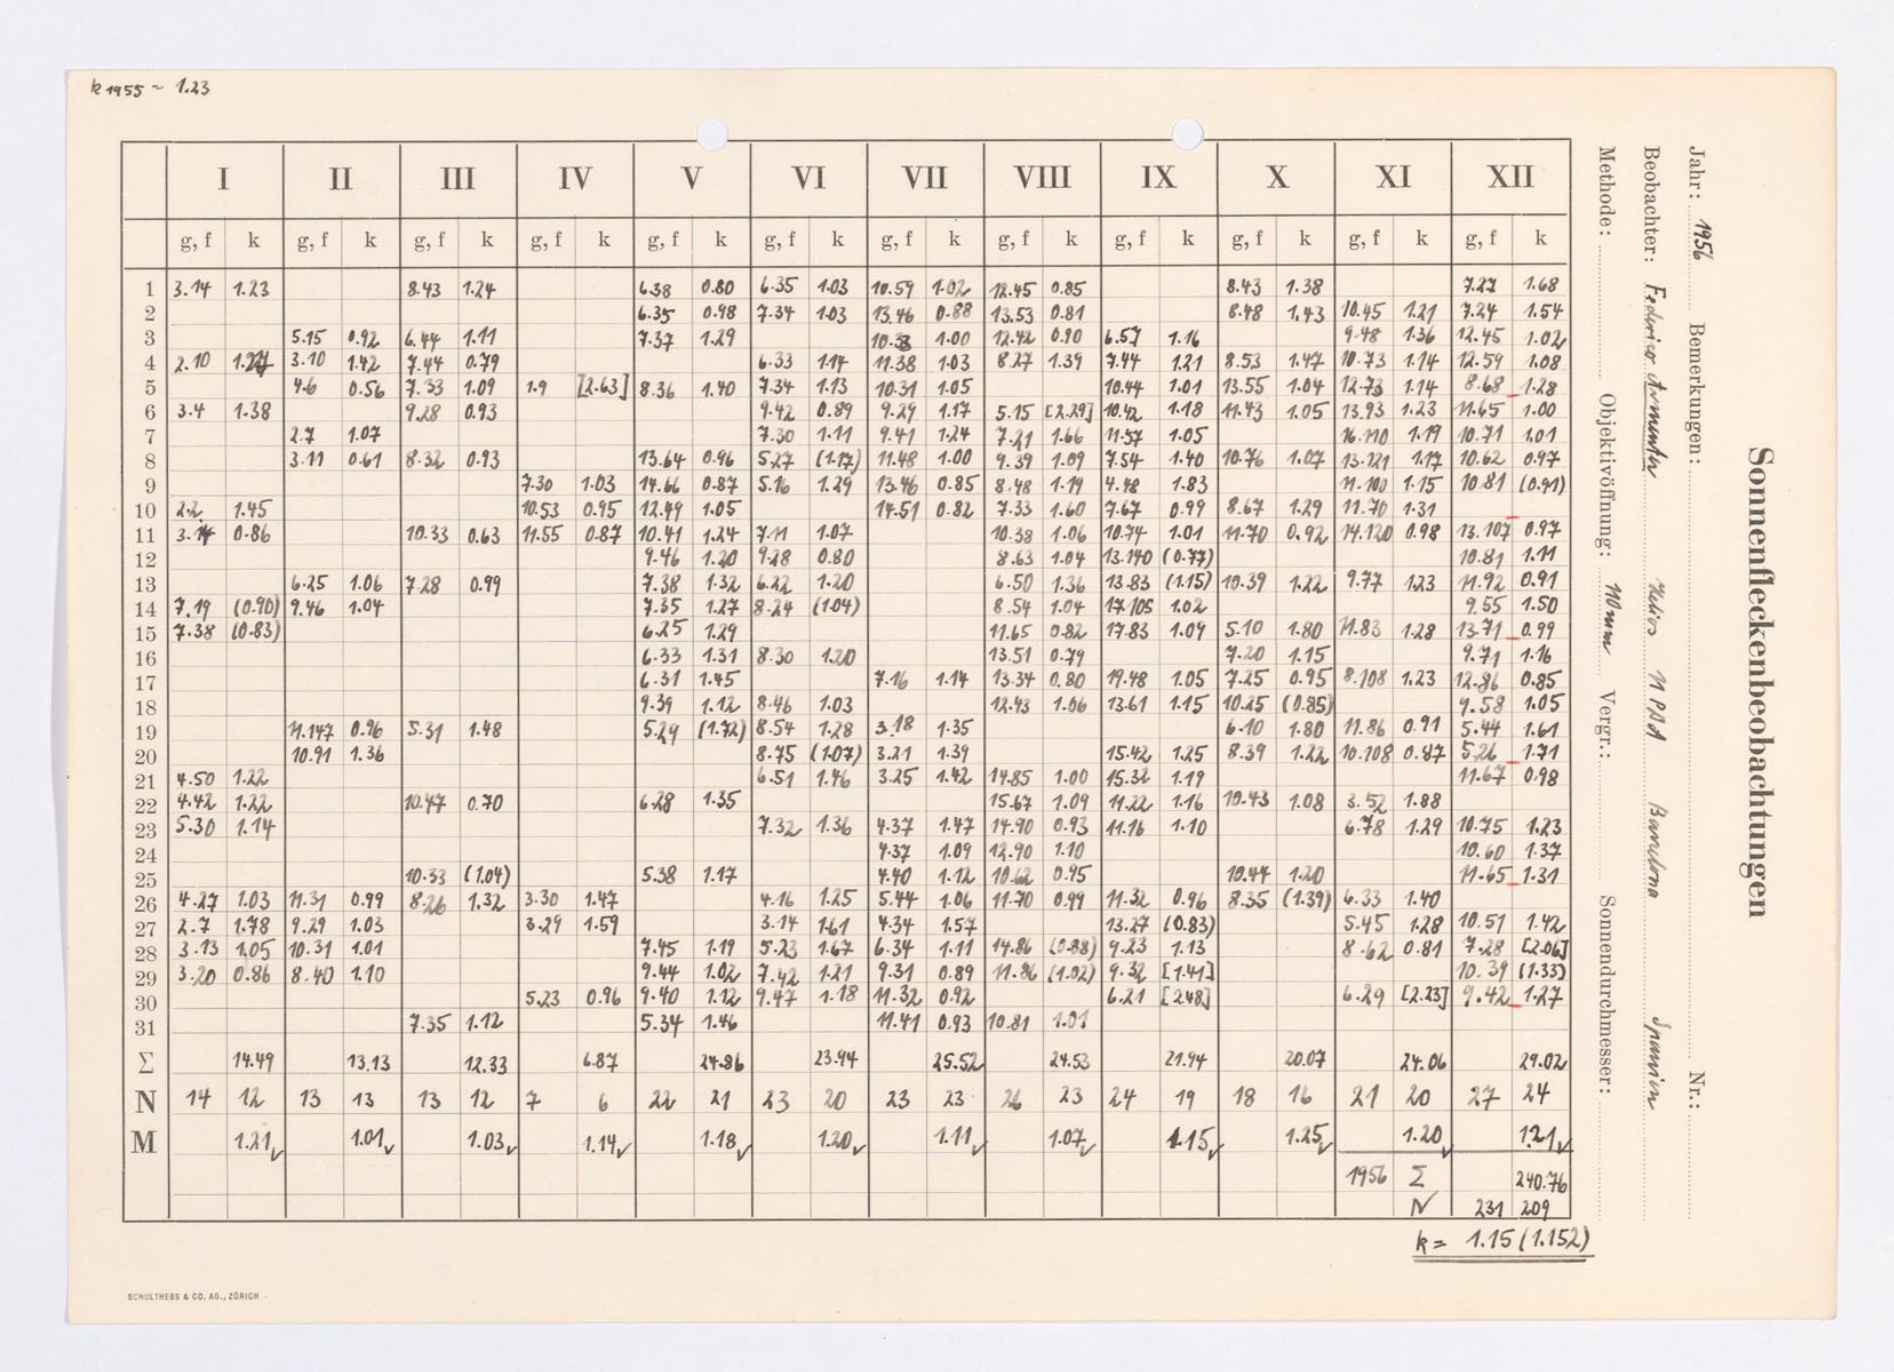 k 1955 ~ 1.23
I II III IV V VI VII VIII IX X XI XII
g, f k g, f k g, f k g, f k g, f k g, f k g, f k g, f k g, f k g, f k g, f k g, f k
1 3.14 1.23 8.43 1.24 6.38 0.80 6.35 1.03 10.59 1.02 12.45 0.85 8.43 1.38 7.27 1.68
2 6.35 0.98 7.34 1.03 13.46 0.88 13.53 0.81 8.48 1.43 10.45 1.21 7.24 1.54
3 5.15 0.92 6.44 1.11 7.37 1.29 10.38 1.00 12.42 0.90 6.57 1.16 9.48 1.36 12.45 1.02
4 2.10 3.10 1.42 7.44 0.79 6.33 1.14 11.38 1.03 8.27 1.39 7.44 1.21 8.53 1.47 10.73 1.14 12.59 1.08
5 4.6 0.56 7.33 1.09 1.9 [2.63] 8.36 1.40 7.34 1.13 10.31 1.05 10.44 1.01 13.55 1.04 12.73 1.14 8.68 1.28
6 3.4 1.38 9.28 0.93 9.42 0.89 9.29 1.17 5.15 [2.29] 10.42 1.18 11.43 1.05 13.93 1.23 11.65 1.00
7 2.7 1.07 7.30 1.11 9.41 1.24 7.21 1.66 11.57 1.05 16.110 1.19 10.71 1.01
8 3.11 0.61 8.32 0.93 13.64 0.96 5.27 (1.17) 11.48 1.00 9.39 1.09 7.54 1.40 10.76 1.07 13.121 1.17 10.62 0.97
9 7.30 1.03 14.66 0.87 5.16 1.29 13.46 0.85 8.48 1.19 4.48 1.83 11.100 1.15 10.81 (0.91)
10 2.2 1.45 10.53 0.95 12.49 1.05 14.51 0.82 7.33 1.60 7.67 0.99 8.67 1.29 11.70 1.31
11 3.14 0.86 10.33 0.63 11.55 0.87 10.41 1.24 7.11 1.07 10.38 1.06 10.74 1.01 11.70 0.92 14.120 0.98 13.107 0.97
12 9.46 1.20 9.28 0.80 8.63 1.04 13.140 (0.77) 10.81 1.11
13 6.25 1.06 7.28 0.99 7.38 1.32 6.22 1.20 6.50 1.36 13.83 (1.15) 10.39 1.22 9.77 1.23 11.92 0.91
14 7.19 (0.90) 9.46 1.04 7.35 1.27 8.24 (1.04) 8.54 1.04 17.105 1.02 9.55 1.50
15 7.38 (0.83) 6.25 1.29 11.65 0.82 17.83 1.09 5.10 1.80 11.83 1.28 13.71 0.99
16 6.33 1.31 8.30 1.20 13.51 0.79 7.20 1.15 9.71 1.16
17 6.31 1.45 7.16 1.14 13.34 0.80 19.48 1.05 7.25 0.95 8.108 1.23 12.86 0.85
18 9.39 1.12 8.46 1.03 12.43 1.06 13.61 1.15 10.25 (0.85) 9.58 1.05
19 11.147 0.96 5.31 1.48 5.29 (1.72) 8.54 1.28 3.18 1.35 6.10 1.80 11.86 0.91 5.44 1.61
20 10.91 1.36 8.75 (1.07) 3.21 1.39 15.42 1.25 8.39 1.22 10.108 0.87 5.26 1.71
21 4.50 1.22 6.51 1.46 3.25 1.42 14.85 1.00 15.32 1.19 11.67 0.98
22 4.42 1.22 10.47 0.70 6.28 1.35 15.67 1.09 11.22 1.16 10.43 1.08 3.52 1.88
23 5.30 1.14 7.32 1.36 4.37 1.47 14.90 0.93 11.16 1.10 6.78 1.29 10.75 1.23
24 4.37 1.09 12.90 1.10 10.60 1.37
25 10.33 (1.04) 5.38 1.17 4.40 1.12 10.62 0.95 10.44 1.20 11.65 1.31
26 4.27 1.03 11.31 0.99 8.26 1.32 3.30 1.47 4.16 1.25 5.44 1.06 11.70 0.99 11.32 0.96 8.35 (1.39) 6.33 1.40
27 2.7 1.78 9.29 1.03 3.29 1.59 3.14 1.61 4.34 1.57 13.27 (0.83) 5.45 1.28 10.51 1.42
28 3.13 1.05 10.31 1.01 7.45 1.19 5.23 1.67 6.34 1.11 14.86 (0.88) 9.23 1.13 8.62 0.81 7.28 [2.06]
29 3.20 0.86 8.40 1.10 9.44 1.02 7.42 1.21 9.31 0.89 11.86 (1.02) 9.32 [1.41] 10.39 (1.33)
30 5.23 0.96 9.40 1.12 9.47 1.18 11.32 0.92 6.21 [2.48] 6.29 [2.23] 9.42 1.27
31 7.35 1.12 5.34 1.46 11.41 0.93 10.81 1.01
Σ 14.49 13.13 12.33 6.87 24.86 23.94 25.52 24.53 21.94 20.07 24.06 29.02
N 14 12 13 13 13 12 7 6 22 21 23 20 23 23 26 23 24 19 18 16 21 20 27 24
M 1.21✓ 1.01✓ 1.03✓ 1.14✓ 1.18✓ 1.20✓ 1.11✓ 1.07✓ 1.15✓ 1.25✓ 1.20✓ 1.21✓
1956 Σ 240.76
N 231 209
k = 1.15 (1.152)
SCHULTHESS & CO. AG., ZÜRICH
Sonnenfleckenbeobachtungen
Jahr: 1956 Bemerkungen: Nr.:
Beobachter: Federico Armenter Helios Barcelona Spanien
Methode: Objektivöffnung: 110mm Vergr.: Sonnendurchmesser: